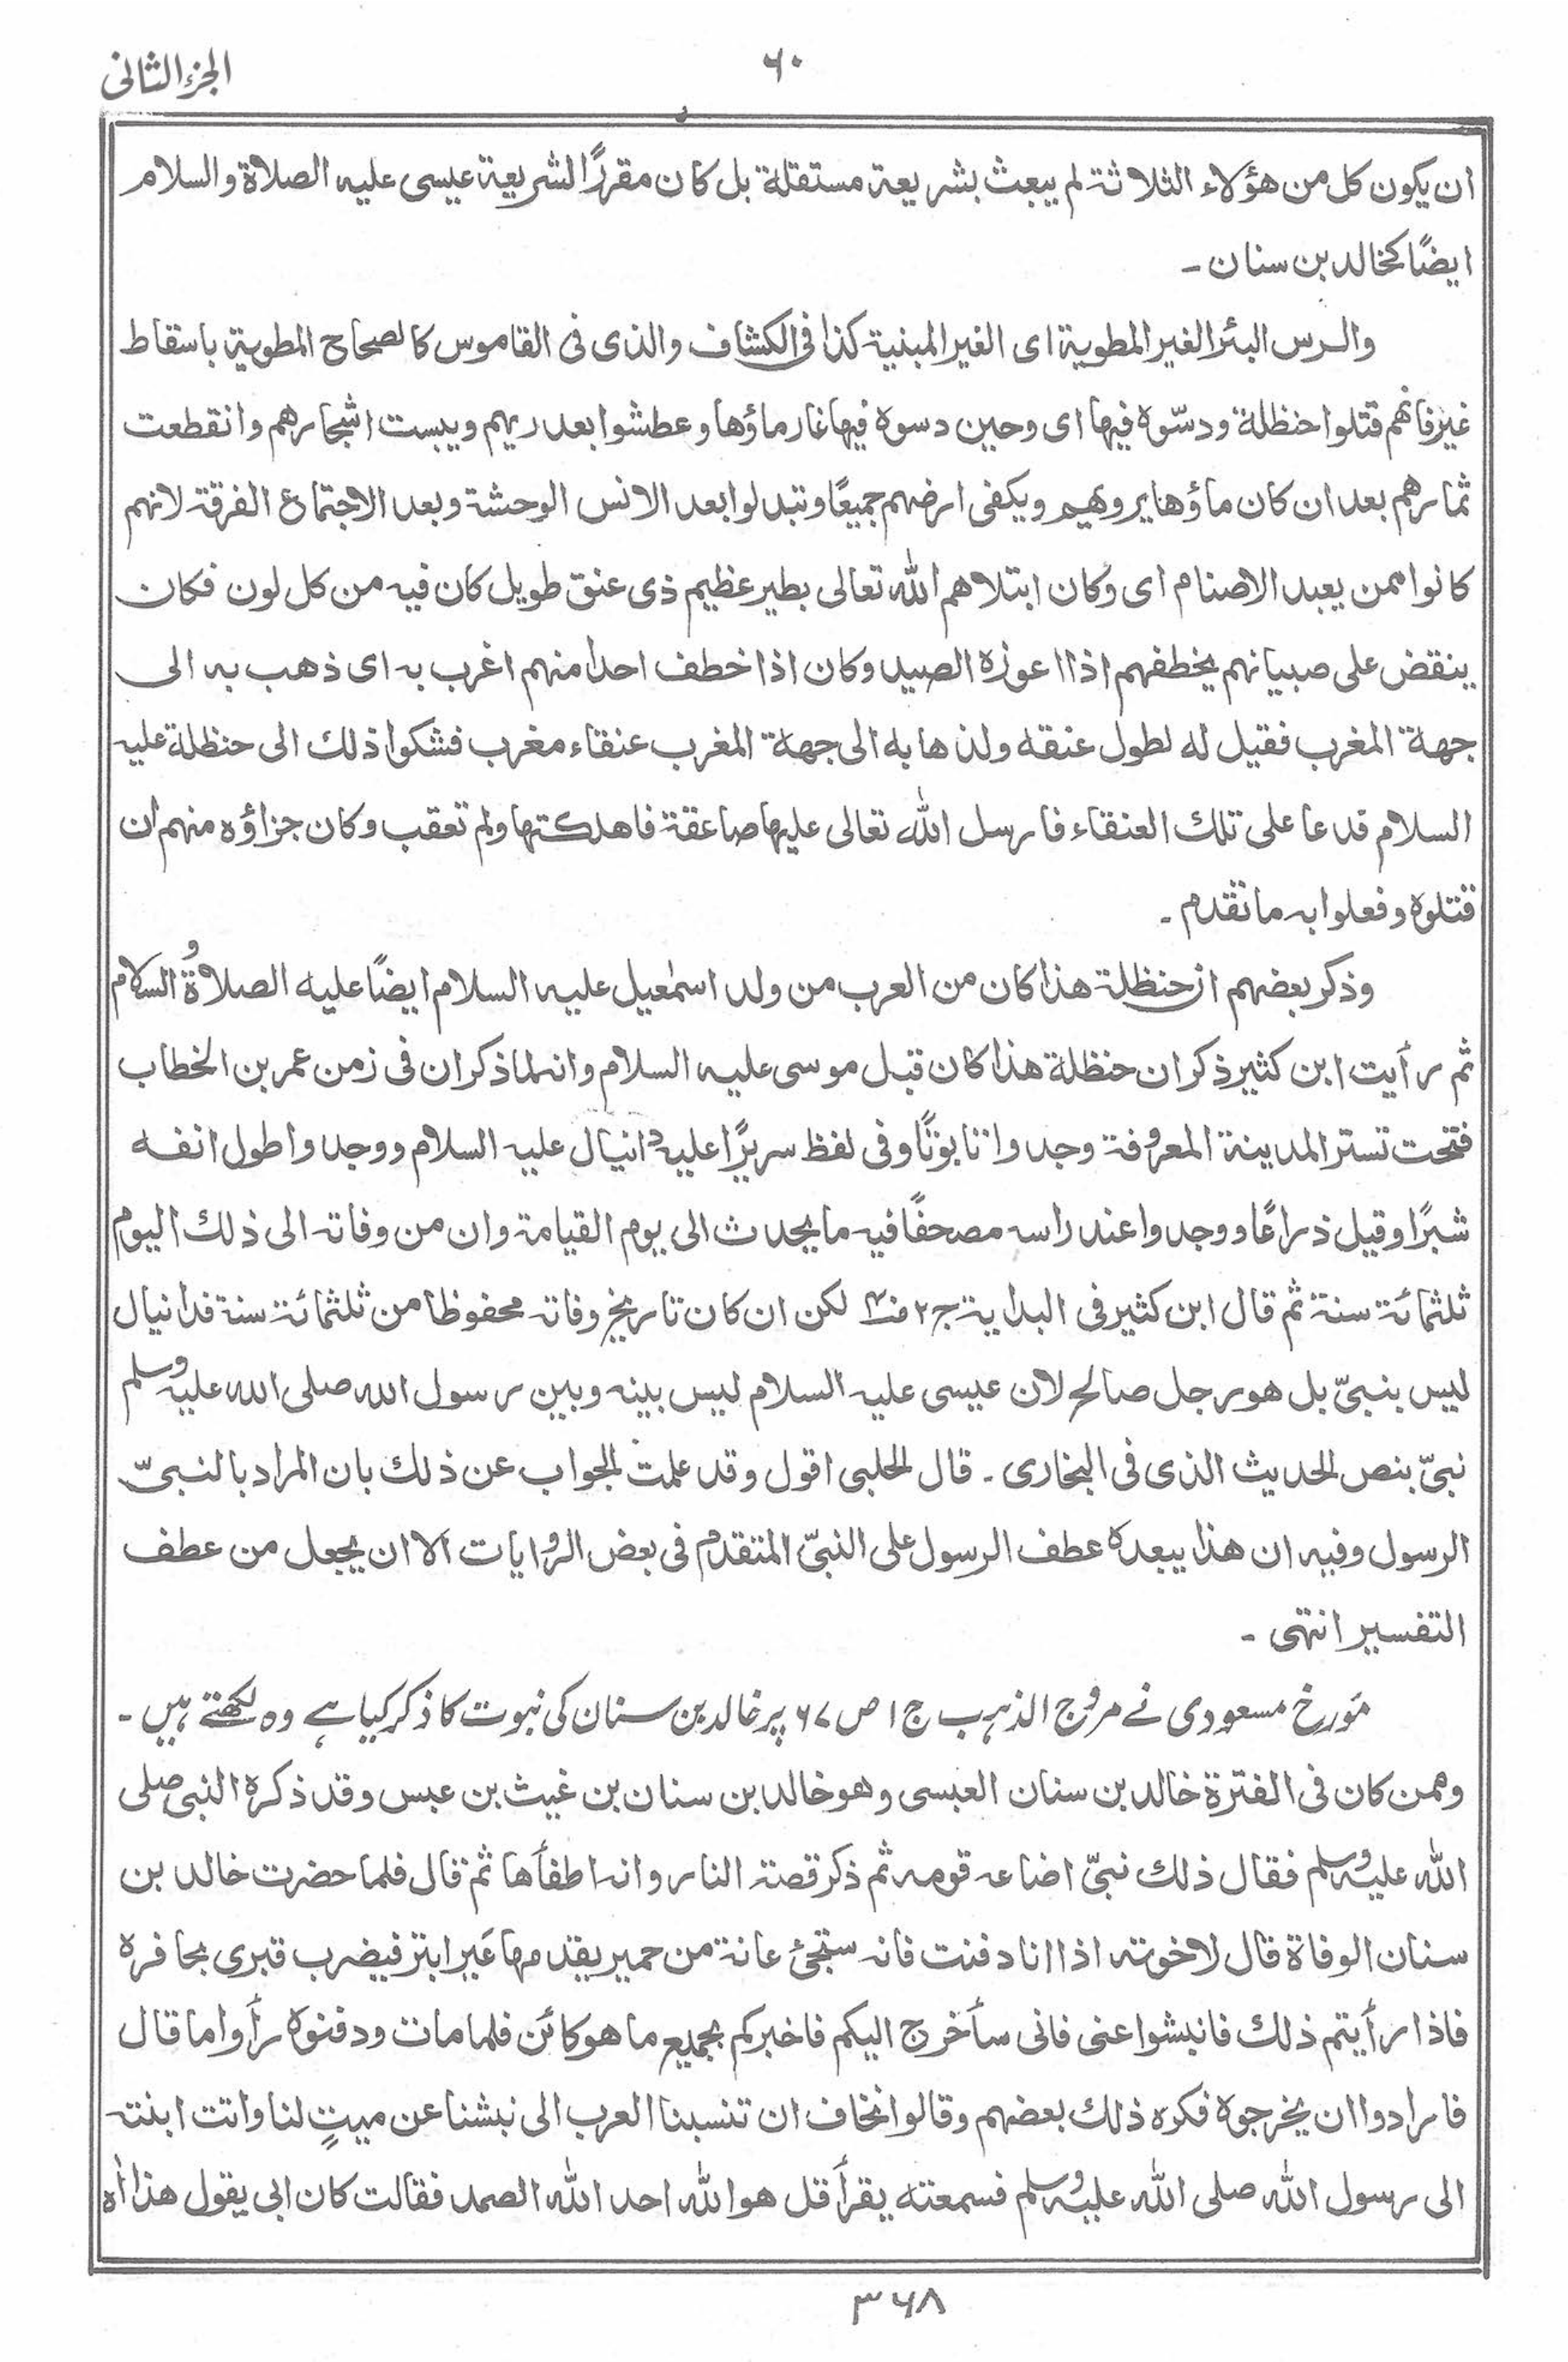 الجزء الثانی
۶۰
ان یکون کل من هؤلاء الثلاثة لم یبعث بشریعة مستقلة بل کان مقررًا لشریعة عیسی علیه الصلاة والسلام
ایضًا کخالد بن سنان ۔
والرس البئر الغیر المطویة ای الغیر المبنیة کذا فی الکشاف والذی فی القاموس کالصحاح المطویة باسقاط
غیر فانهم قتلوا حنظلة ودسّوه فیها ای وحین دسوه فیها غار ماؤها وعطشوا بعد ریهم ویبست اشجارهم وانقطعت
ثمارهم بعد ان کان ماؤها یرویهم ویکفی ارضهم جمیعًا وتبدلوا بعد الانس الوحشة وبعد الاجتماع الفرقة لانهم
کانوا ممن یعبد الاصنام ای وکان ابتلاهم الله تعالی بطیر عظیم ذی عنق طویل کان فیه من کل لون فکان
ینقض علی صبیانهم یخطفهم اذا اعوزه الصید وکان اذا خطف احدا منهم اغرب به ای ذهب به الی
جهة المغرب فقیل له لطول عنقه ولذهابه الی جهة المغرب عنقاء مغرب فشکوا ذلك الی حنظلة علیه
السلام فدعا علی تلك العنقاء فارسل الله تعالی علیها صاعقة فاهلکتها ولم تعقب وکان جزاؤه منهم ان
قتلوه وفعلوا به ما تقدم ۔
وذکر بعضهم ان حنظلة هذا کان من العرب من ولد اسمٰعیل علیه السلام ایضًا علیه الصلاةُ والسلام
ثم رأیت ابن کثیر ذکر ان حنظلة هذا کان قبل موسی علیه السلام وانه لما ذکر ان فی زمن عمر بن الخطاب
فتحت تستر المدینة المعروفة وجدوا تابوتًا وفی لفظ سریرًا علیه دانیال علیه السلام ووجدوا طول انفه
شبرًا وقیل ذراعًا ووجدوا عند راسه مصحفًا فیه ما یحدث الی یوم القیامة وان من وفاته الی ذلك الیوم
ثلثمائة سنة ثم قال ابن کثیر فی البدایة ج۲ لکن ان کان تاریخ وفاته محفوظا من ثلثمائة سنة فدانیال
لیس بنبیّ بل هو رجل صالح لان عیسی علیه السلام لیس بینه وبین رسول الله صلی الله علیه وسلم
نبیّ بنص الحدیث الذی فی البخاری ۔ قال الحلبی اقول وقد علمت الجواب عن ذلك بان المراد بالنبیّ
الرسول وفیه ان هذا یبعده عطف الرسول علی النبیّ المتقدم فی بعض الروایات الا ان یجعل من عطف
التفسیر انتهی ۔
مؤرخ مسعودی نے مروج الذہب ج ۱ ص ۶۷ پر خالد بن سنان کی نبوت کا ذکر کیا ہے وہ لکھتے ہیں ۔
وممن کان فی الفترة خالد بن سنان العبسی وهو خالد بن سنان بن غیث بن عبس وقد ذکره النبی صلی
الله علیه وسلم فقال ذلك نبیّ اضاعه قومه ثم ذکر قصة النار وانه اطفأها ثم قال فلما حضرت خالد بن
سنان الوفاة قال لاخوته اذا انا دفنت فانه ستجئ عانة من حمیر یقدمها عَیر ابتر فیضرب قبری بحافره
فاذا رأیتم ذلك فانبشوا عنی فانی سأخرج الیکم فاخبرکم بجمیع ما هو کائن فلما مات ودفنوه رأوا ما قال
فارادوا ان یخرجوه فکره ذلك بعضهم وقالوا نخاف ان تنسبنا العرب الی نبشنا عن میتٍ لنا واتت ابنته
الی رسول الله صلی الله علیه وسلم فسمعته یقرأ قل هو الله احد الله الصمد فقالت کان ابی یقول هذا اه
۳۶۸